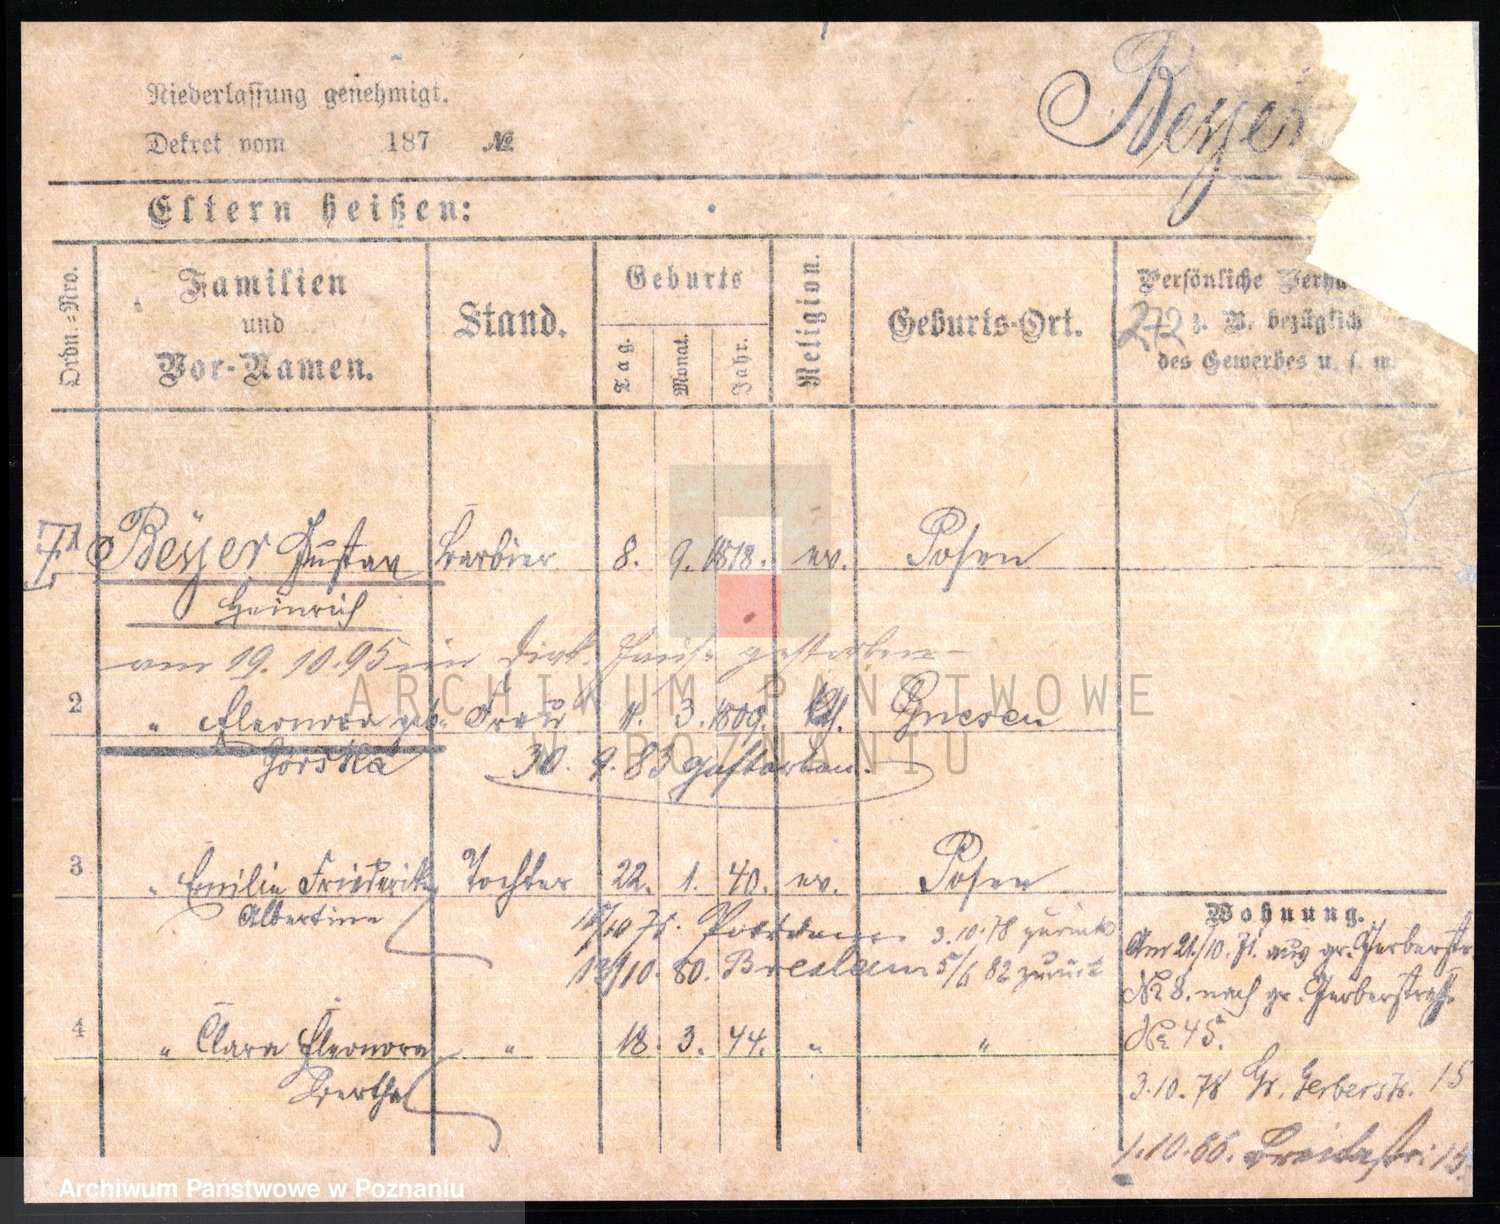 Beyer
Niederlassung genehmigt.
Dekret vom 187 №
Eltern heißen:
Ordn.-Nro.
Familien
und
Vor-Namen.
Stand.
Geburts
Tag.
Monat.
Jahr.
Religion.
Geburts-Ort.
Persönliche
272 z. B. bezüglich
des Gewerbes u. s. w.
Beyer Gustav Barbier 8. 9. 1818. ev. Posen
Heinrich
am 19. 10. 95 im Diak. Hause gestorben
2 " Eleonora geb. Frau 11. 3. 1809. Gnesen
Gorska 30. 9. 83 gestorben.
3 " Emilie Friederike Tochter 22. 1. 40. ev. Posen
Albertine
10 78. Potsdam 3.10.78 zurück
13/10. 80. Breslau 5/6 82 zurück
4 " Clara Eleonora " 18. 3. 44. " "
Bertha
Wohnung.
Am 21/10. 71. aus gr. Gerberstr.
№ 8. nach gr. Gerberstraße
№ 45.
3.10.78 Gr. Gerberstr. 15
1.10.86. Breitestr. 15
ARCHIWUM PAŃSTWOWE
W POZNANIU
Archiwum Państwowe w Poznaniu